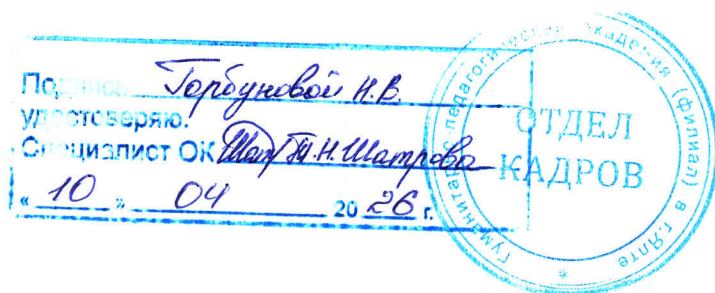 Подпись Горбуновой Н.В.
удостоверяю.
Специалист ОК Шат/ Т.Н. Шатрова
« 10 » 04 20 26 г.
Гуманитарно-педагогическая академия (филиал) в г.Ялте *
ОТДЕЛ
КАДРОВ